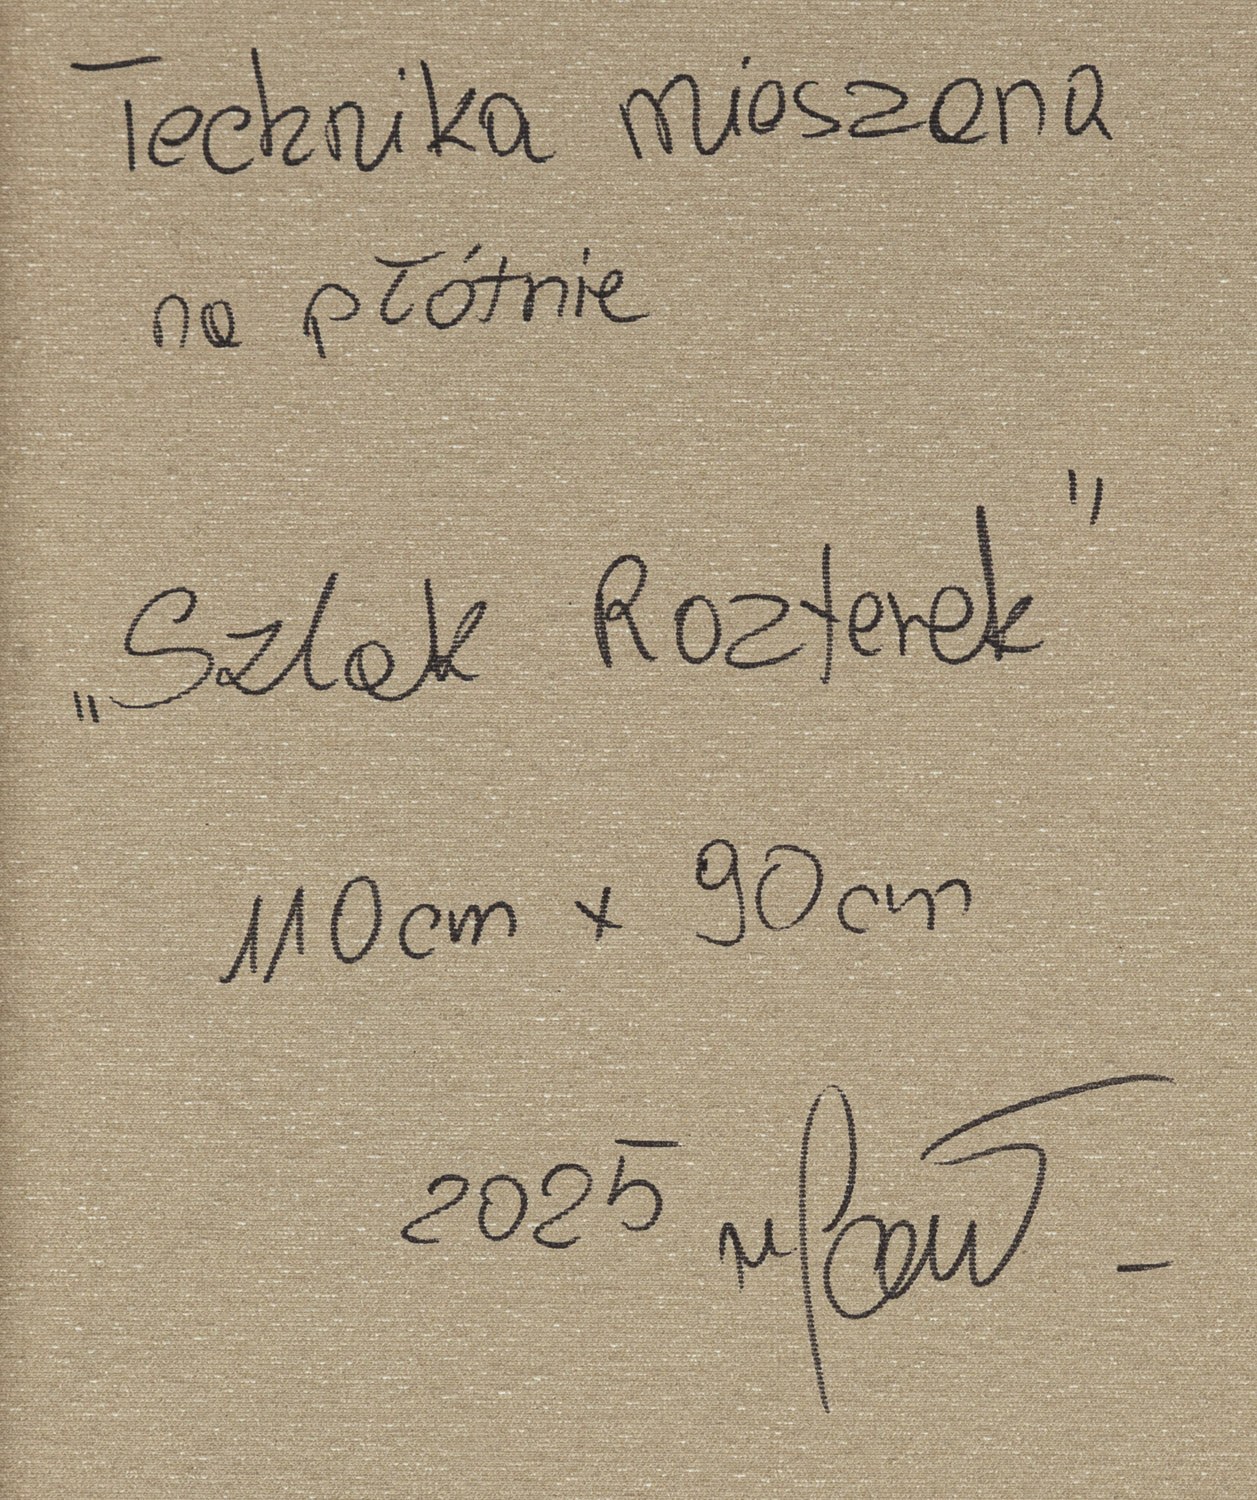 Technika mieszana
na płótnie
„Szlak Rozterek”
110cm x 90cm
2025